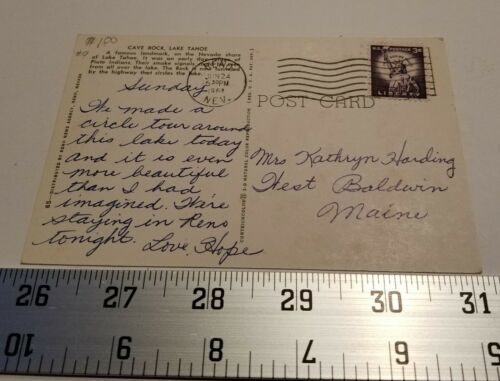 #100
CAVE ROCK, LAKE TAHOE
A famous landmark, on the Nevada shore
of Lake Tahoe. It was an early day
Piute Indians. Their smoke signals
from all over the lake. The Rock is
by the highway that circles the lake.
Sunday
We made a
circle tour around
this lake today
and it is even
more beautiful
than I had
imagined. We're
staying in Reno
tonight. Love, Hope
JUN 24
PM
NEV.
U.S. POSTAGE 3¢
POST CARD
Mrs Kathryn Harding
West Baldwin
Maine
DISTRIBUTED BY RENO NEWS AGENCY, RENO, NEVADA
26 27 28 29 30 31
10 9 8 7 6 5 4